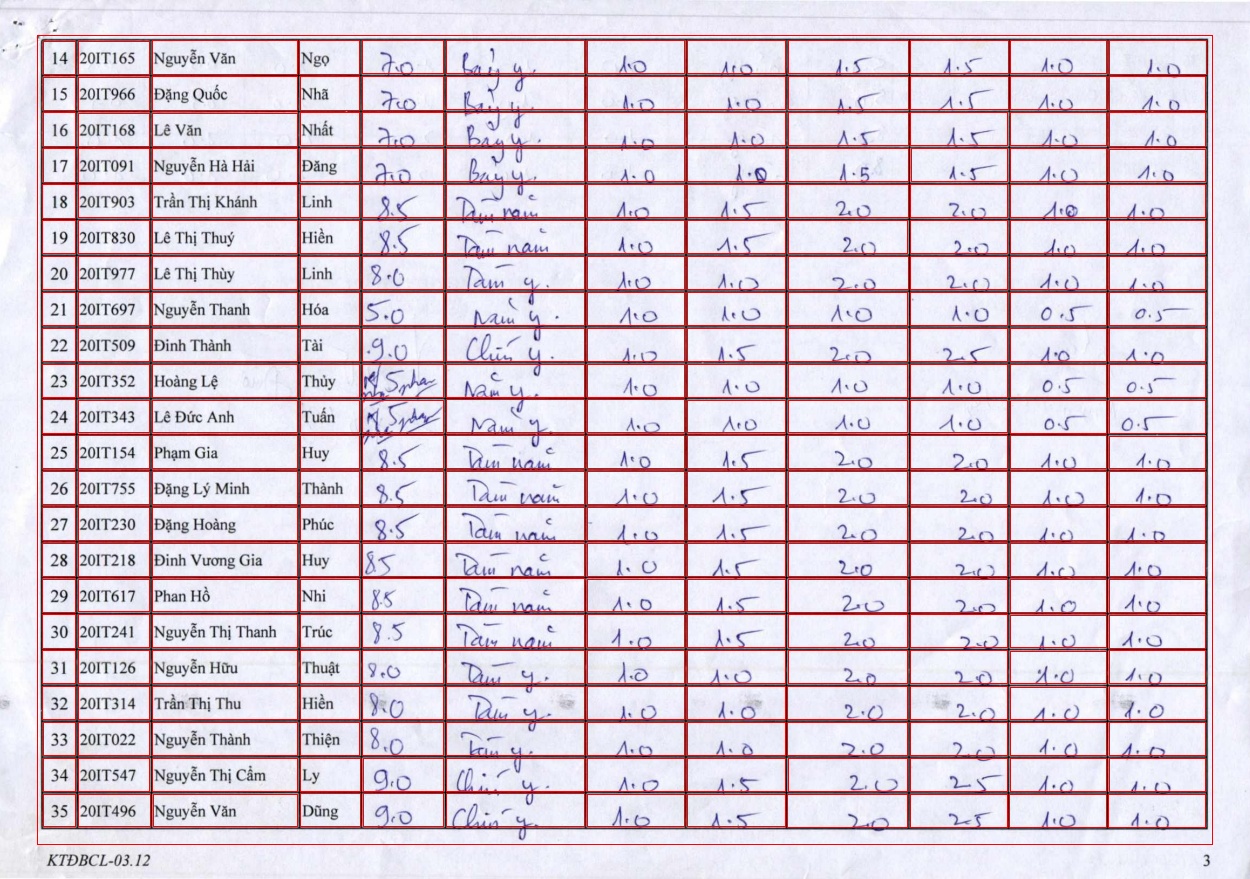 14 20IT165 Nguyễn Văn Ngọ 7.0 Bảy y. 1.0 1.0 1.5 1.5 1.0 1.0
15 20IT966 Đặng Quốc Nhã 7.0 Bảy y. 1.0 1.0 1.5 1.5 1.0 1.0
16 20IT168 Lê Văn Nhất 7.0 Bảy y. 1.0 1.0 1.5 1.5 1.0 1.0
17 20IT091 Nguyễn Hà Hải Đăng 7.0 Bảy y. 1.0 1.0 1.5 1.5 1.0 1.0
18 20IT903 Trần Thị Khánh Linh 8.5 Tám năm 1.0 1.5 2.0 2.0 1.0 1.0
19 20IT830 Lê Thị Thuý Hiền 8.5 Tám năm 1.0 1.5 2.0 2.0 1.0 1.0
20 20IT977 Lê Thị Thùy Linh 8.0 Tám y. 1.0 1.0 2.0 2.0 1.0 1.0
21 20IT697 Nguyễn Thanh Hóa 5.0 Năm y. 1.0 1.0 1.0 1.0 0.5 0.5
22 20IT509 Đinh Thành Tài 9.0 Chín y. 1.0 1.5 2.0 2.5 1.0 1.0
23 20IT352 Hoàng Lệ Thủy 5 Năm y. 1.0 1.0 1.0 1.0 0.5 0.5
24 20IT343 Lê Đức Anh Tuấn 5 Năm y 1.0 1.0 1.0 1.0 0.5 0.5
25 20IT154 Phạm Gia Huy 8.5 Tám năm 1.0 1.5 2.0 2.0 1.0 1.0
26 20IT755 Đặng Lý Minh Thành 8.5 Tám năm 1.0 1.5 2.0 2.0 1.0 1.0
27 20IT230 Đặng Hoàng Phúc 8.5 Tám năm 1.0 1.5 2.0 2.0 1.0 1.0
28 20IT218 Đinh Vương Gia Huy 85 Tám năm 1.0 1.5 2.0 2.0 1.0 1.0
29 20IT617 Phan Hồ Nhi 8.5 Tám năm 1.0 1.5 2.0 2.0 1.0 1.0
30 20IT241 Nguyễn Thị Thanh Trúc 8.5 Tám năm 1.0 1.5 2.0 2.0 1.0 1.0
31 20IT126 Nguyễn Hữu Thuật 8.0 Tám y. 1.0 1.0 2.0 2.0 1.0 1.0
32 20IT314 Trần Thị Thu Hiền 8.0 Tám y. 1.0 1.0 2.0 2.0 1.0 1.0
33 20IT022 Nguyễn Thành Thiện 8.0 Tám y. 1.0 1.0 2.0 2.0 1.0 1.0
34 20IT547 Nguyễn Thị Cẩm Ly 9.0 Chín y. 1.0 1.5 2.0 2.5 1.0 1.0
35 20IT496 Nguyễn Văn Dũng 9.0 Chín y. 1.0 1.5 2.0 2.5 1.0 1.0
KTĐBCL-03.12 3